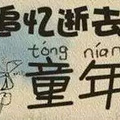 追忆逝去
tóng nián
童年